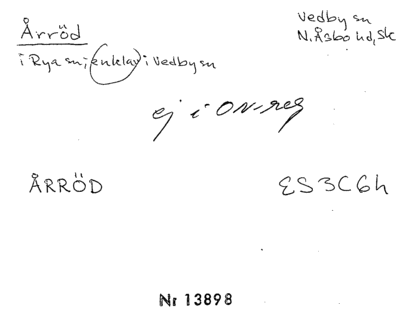 Årröd
Vedby sn
N. Åsbo hd, Sk
i Rya sn; enklav i Vedby sn
ej i ON-reg
ÅRRÖD
ES3C6h
Nr 13898